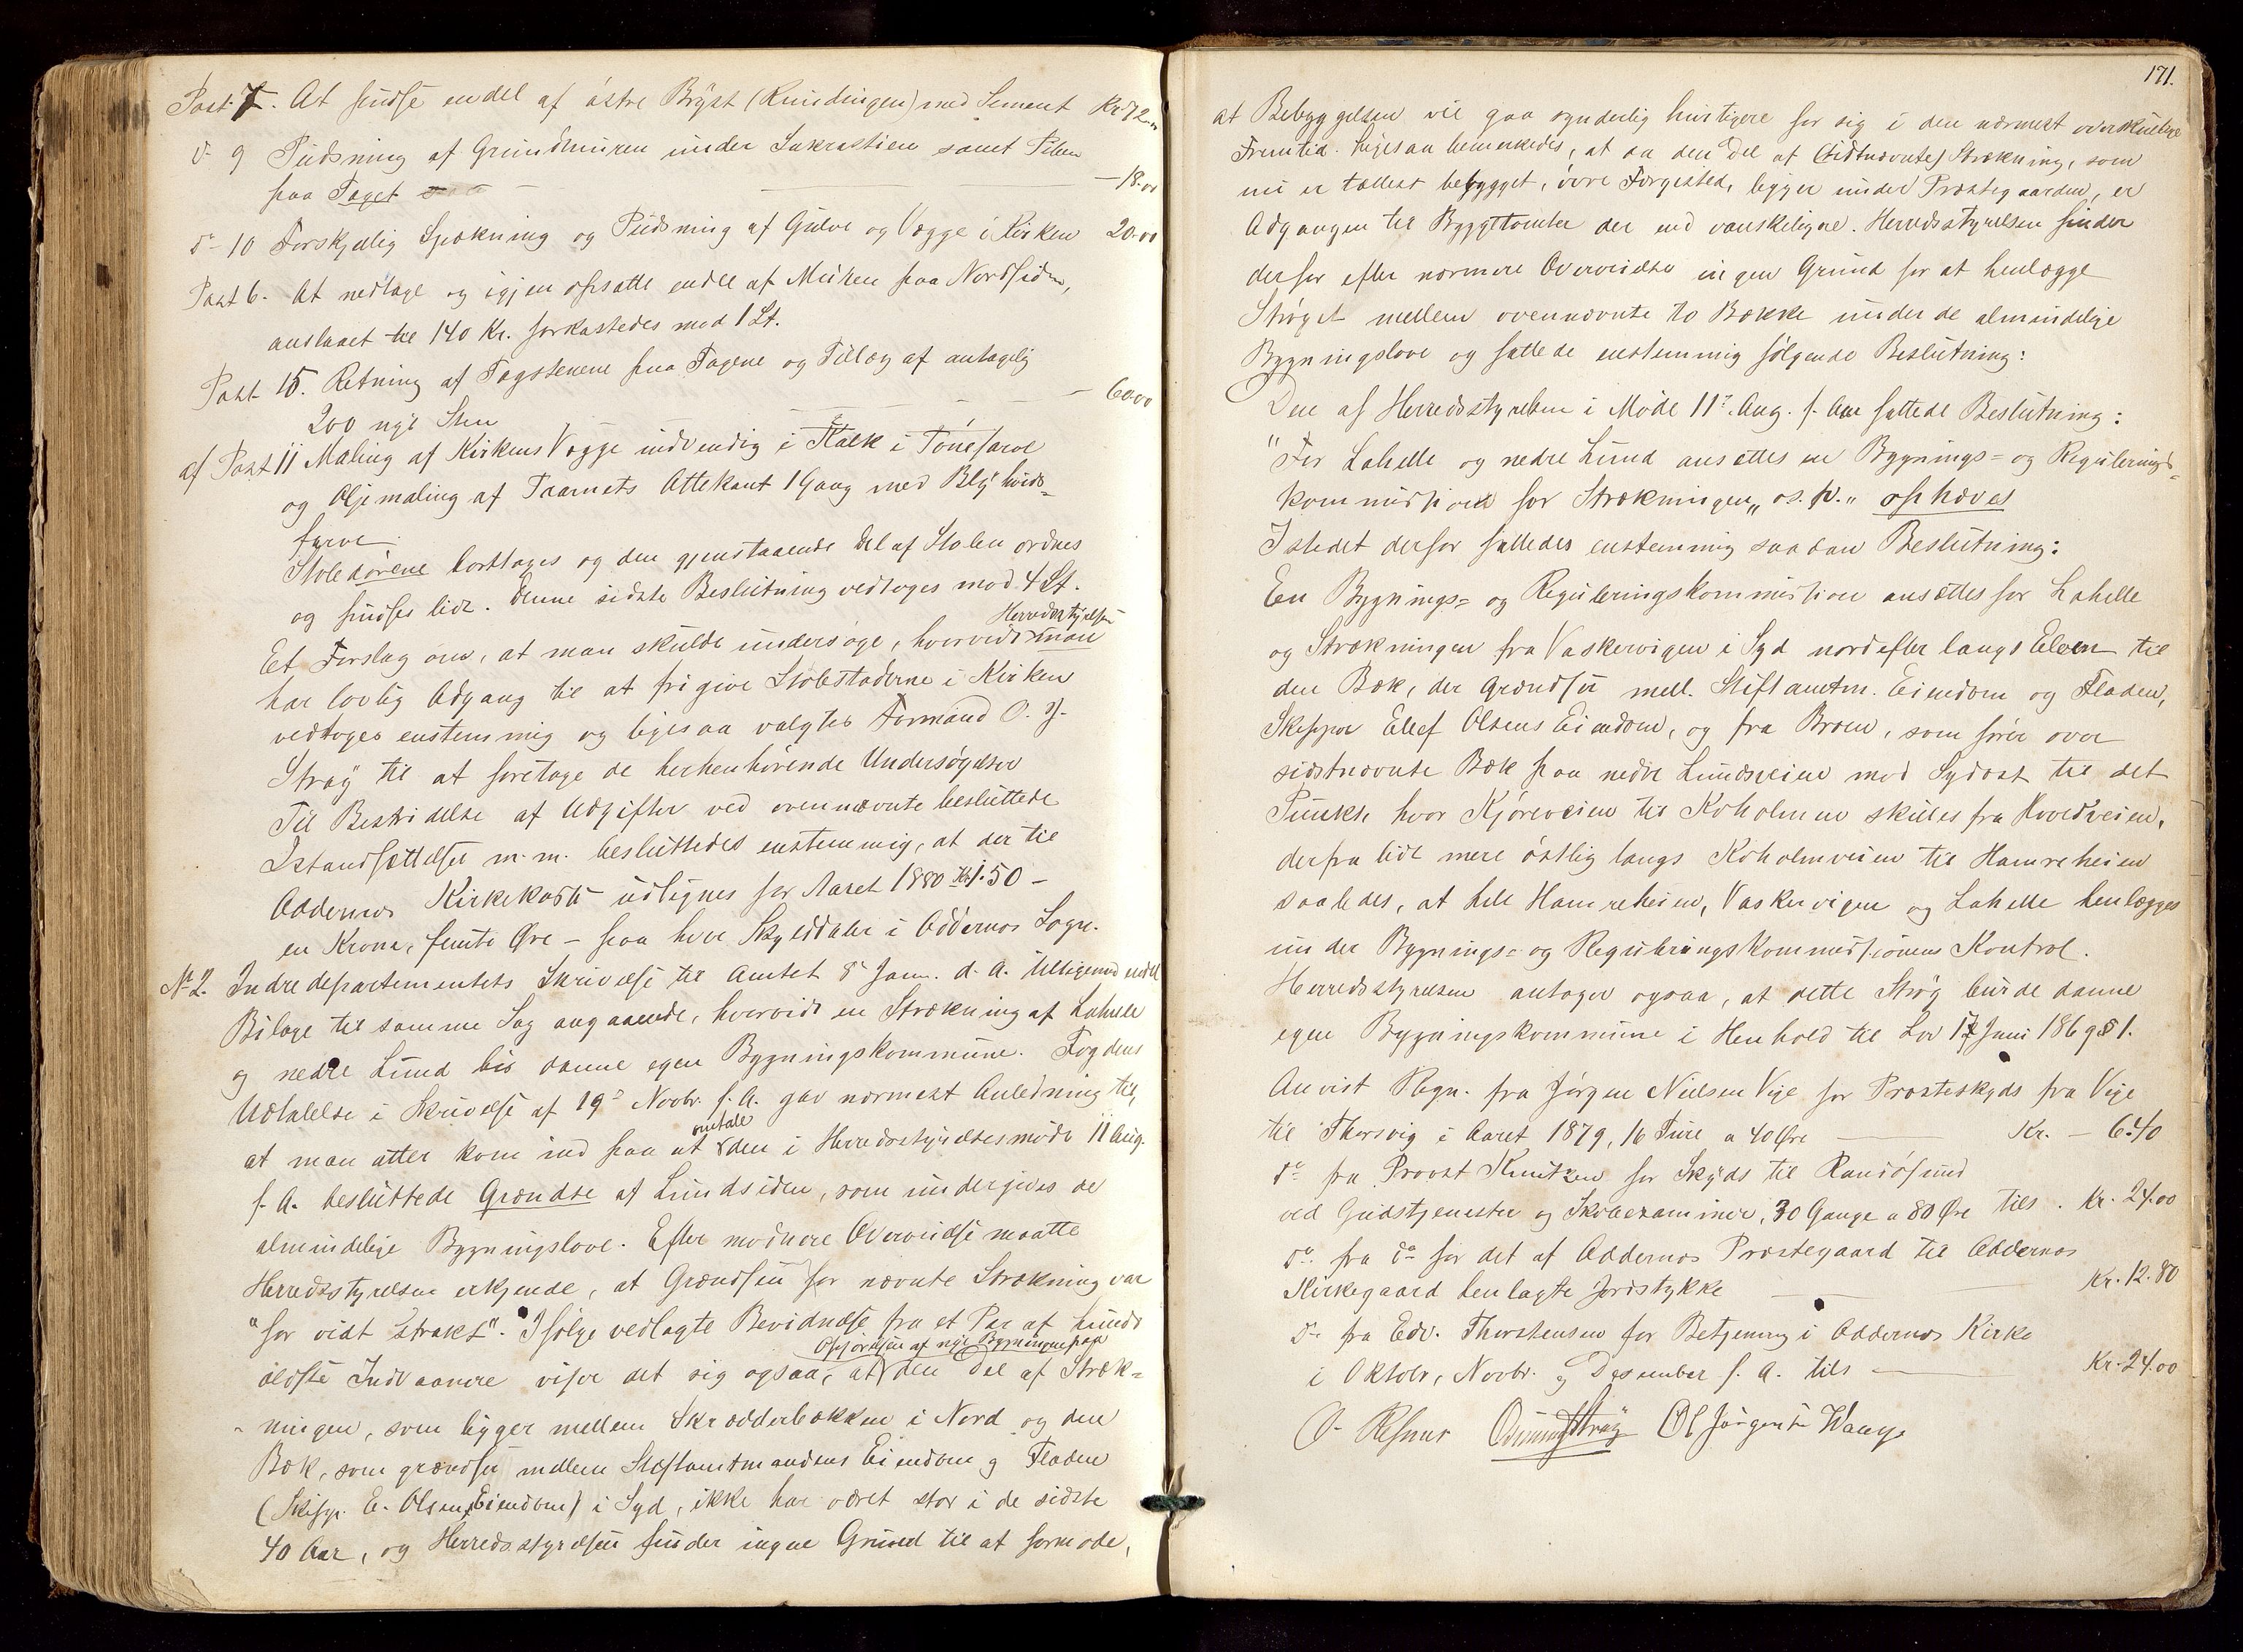 Post 7. At pudse endel af östre Bryst (Rundingen) med Sement Kr. 72.00
do 9 Pudsning af Grundmuren under Sakrastien samt Pilen
paa Taget — 18.00
do 10 Forskjellig Spækning og Pudsning af Gulve og Vægge i Kirken 20.00
Post 6. At nedtage og igjen opsætte endel af Muren paa Nordsiden,
anslaaet til 140 Kr. forkastedes mod 1 St.
Post 15. Retning af Tagstenene paa Tagene og Tillæg af antagelig
200 nye Sten — 60.00
af Post 11 Maling af Kirkens Vægge indvendig i Kalk i Tönefarve
og Oljemaling af Taarnets Ottekant 1 Gang med Blyhvids-
farve.
Stoledörene borttages og den gjenstaaende Del af Stolen ordnes
og pudses lidt. Denne sidste Beslutning vedtoges mod 4 St.
Herredsstyrelsen
Et Forslag om, at man skulde undersöge, hvorvidt man
har lovlig Adgang til at frigive Stolestaderne i Kirken
vedtoges enstemmig og ligesaa valgtes Formand O. J.
Stray til at foretage de herhenhörende Undersögelser
Til Bestridelse af Udgifter ved ovennævnte besluttede
Istandsættelser m.m. besluttedes enstemmig, at der til
Oddernes Kirkekasse udlignes for Aaret 1880 Kr. 1.50 —
en Krone, femti Øre — paa hver Skylddaler i Oddernes Sogn.
No 2. Indredepartementets Skrivelse til Amtet 8de Janr. d. A. tilligemed endel
Bilage til samme Sag angaaende, hvorvidt en Strækning af Lahelle
og nedre Lund bör danne egen Bygningskommune. Fogdens
Udtalelse i Skrivelse af 19de Novbr. f. A. gav nærmest Anledning til,
omtale
at man atter kom ind paa at den i Herredsstyrelsesmöde 11 Aug.
f. A. besluttede Grændse af Lundsiden, som undergives de
almindelige Bygningslove. Efter modnere Overveielse maatte
Herredsstyrelsen erkjende, at Grændsen for nævnte Strækning var
"for vidt strakt". Ifölge vedlagte Bevidnelse fra et Par af Lunds
Opförelsen af nye Bygninger paa
ældste Indvaanere viser det sig ogsaa, at den Del af Stræk-
ningen, som ligger mellem Skrædderbækken i Nord og den
Bæk, som grændser mellem Stiftamtmandens Eiendom og Fladen
(Skipr. E. Olsens Eiendom) i Syd, ikke har været stor i de sidste
40 Aar, og Herredsstyrelsen finder ingen Grund til at formode,
171.
at Bebyggelsen vil gaa synderlig hurtigere for sig i den nærmest overskuelige
Fremtid. Ligesaa bemerkedes, at da den Del af (sidtnævnte) Strækning, som
nu er tættest bebygget, övre Færgested, ligger under Præstegaarden, er
Adgangen til Byggetomter der end vanskeligere. Herredsstyrelsen finder
derfor efter nærmere Overveielse ingen Grund for at henlægge
Ströget mellem ovennævnte to Bække under de almindelige
Bygningslove og fattede enstemmig fölgende Beslutning:
Den af Herredsstyrelsen i Möde 11te Aug. f. Aar fattede Beslutning:
"For Lahelle og nedre Lund ansættes en Bygnings- og Regulerings-
kommission for Strækningen" os. v." ophæves
Istedet derfor fattedes enstemmig saadan Beslutning:
En Bygnings- og Reguleringskommission ansættes for Lahelle
og Strækningen fra Vaskervigen i Syd nordefter langs Elven til
den Bæk, der grændser mell. Stiftamtm. Eiendom og Fladen,
Skipper Ellef Olsens Eiendom, og fra Broen, som förer over
sidstnævnte Bæk paa nedre Lundsveien mod Sydost til det
Punkt, hvor Kjöreveien til Koholmen skilles fra Hovedveien,
derfra lidt mere östlig langs Koholmveien til Hamreheien
saaledes, at hele Hamreheien, Vaskervigen og Lahelle henlægges
under Bygnings- og Reguleringskommissionens Kontrol.
Herredsstyrelsen antager ogsaa, at dette Strög burde danne
egen Bygningskommune i Henhold til Lov 17 Juni 1869 § 1.
Anvist Regn. fra Jörgen Nielsen Vige for Præsteskyds fra Vige
til Thorsvig i Aaret 1879, 16 Ture a 40 Øre — Kr. — 6.40
do fra Provst Knutzen for Skyds til Randösund
ved Gudstjenester og Skoleexaminer, 30 Gange a 80 Øre tils. Kr. 24.00
do fra do for det af Oddernes Præstegaard til Oddernes
Kirkegaard henlagte Jordstykke — Kr. 12.80
do fra Edv. Thorstensen for Betjening i Oddernes Kirke
i Oktobr, Novbr. og Desember f. A. tils — Kr. 24.00
Stray Ol Jörgensen Waage